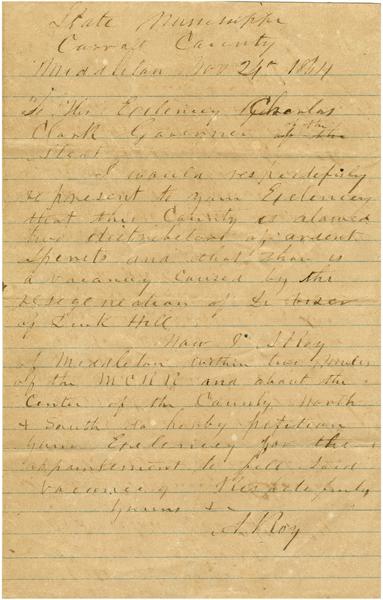 State Mississippi
Carroll County
Middleton Nov 24th 1864
To His Exclency Charlas
Clark Govërner of the
State
I would respectfuley
represent to your Exclency
that this County is alowed
two distributors of ardent
Sperits and that thare is
a vacancy caused by the
resegeneation of Dr
of Duck Hill
Now I A Roy
of Middleton within two miles
of the M C R R and about the
Center of the County North
& South do herby petition
your Exclency for the
appointement to fill said
vacancey Respectefuly
yours &c
A Roy